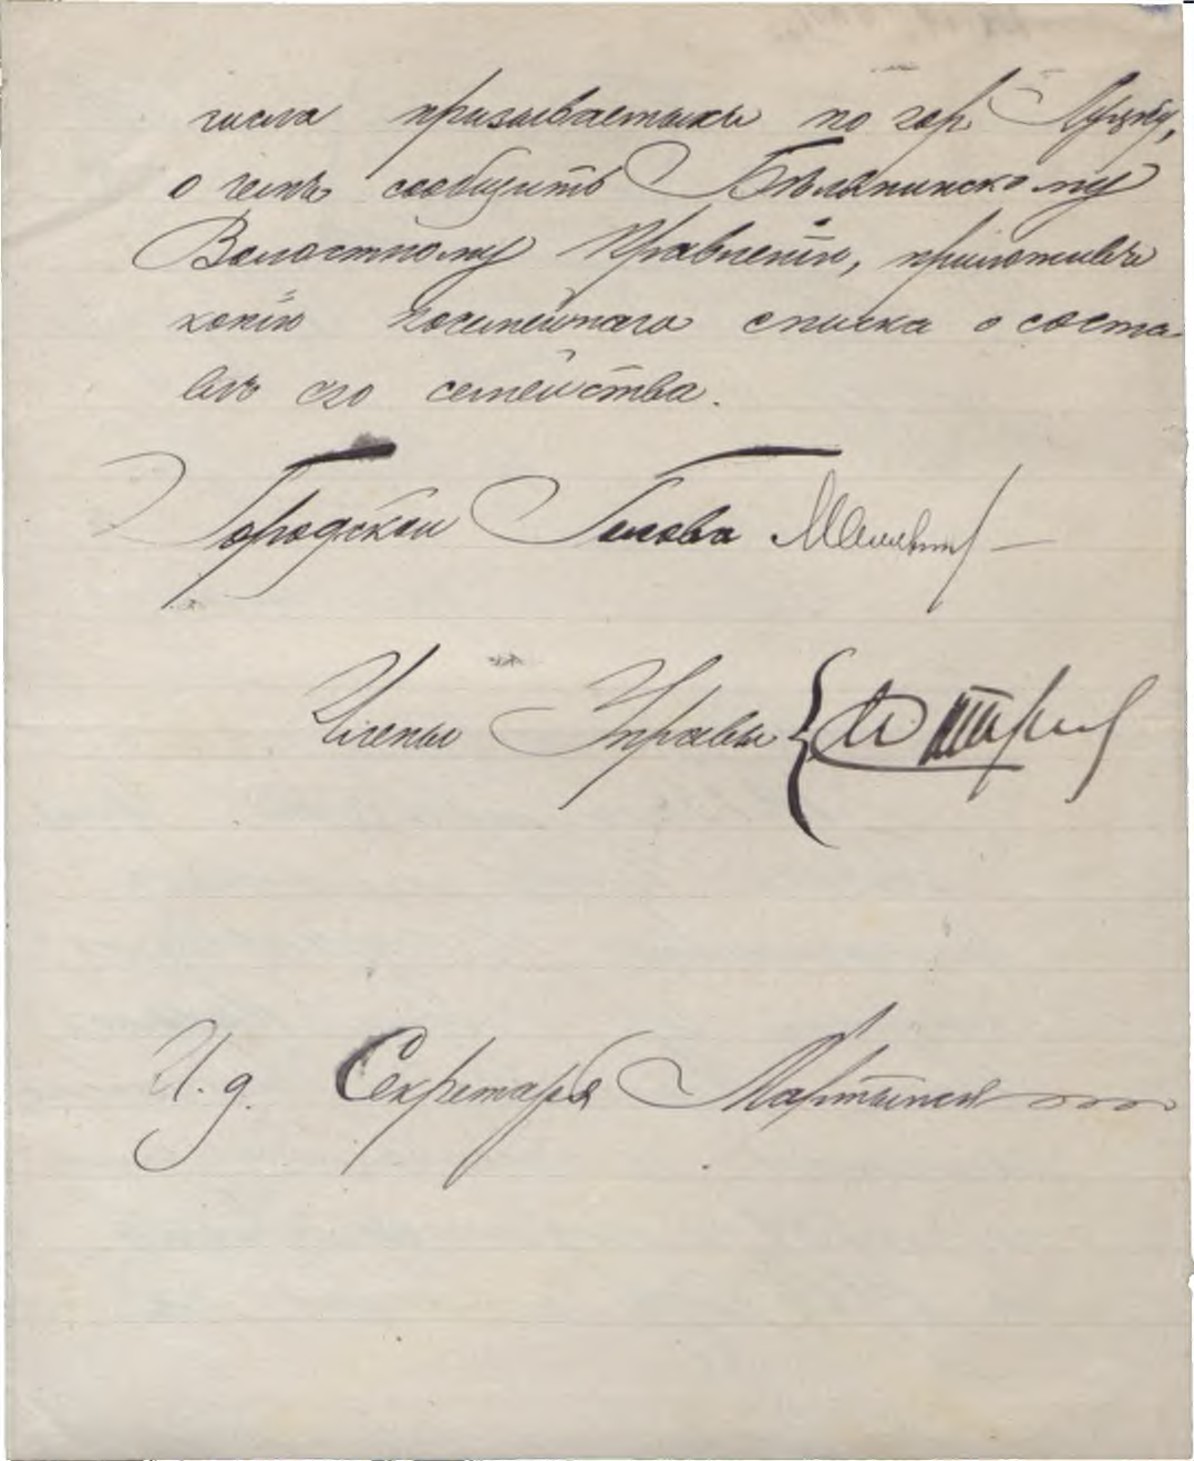 числа призываемыхъ по гор. Луцку,
о чемъ сообщить
Волостному Правленію, приложивъ
копію посемейнаго списка о соста-
вѣ его семейства.
Городской Голова
Члены Управы
И. д. Секретаря